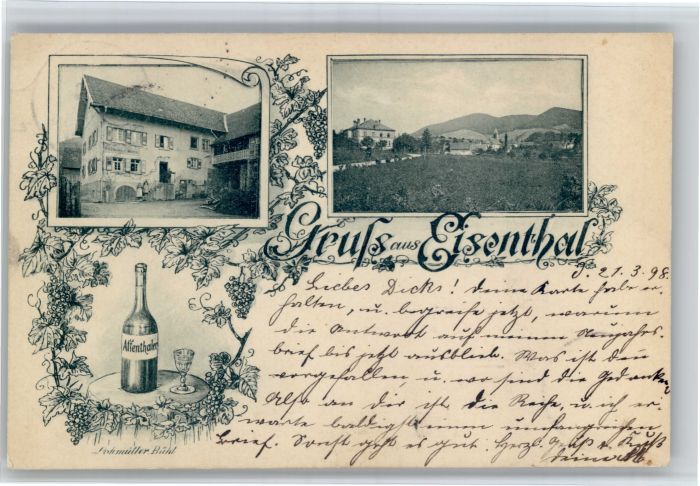 Gruss aus Eisenthal
21.3.98.
Liebes Dicks! Deine Karte habe er-
halten, u. begreife jetzt, warum
die Antwort auf meinen Neujahrs-
brief bis jetzt ausblieb. Was ist dir
vorgefallen, u. wo sind die Gedanken?
Also an dir ist die Reihe, u. ich er-
warte baldigst einen umfangreichen
Brief. Sonst geht es gut. Herzl. Gruß u. Kuß
deine
Affenthaler
Lohmüller Bühl